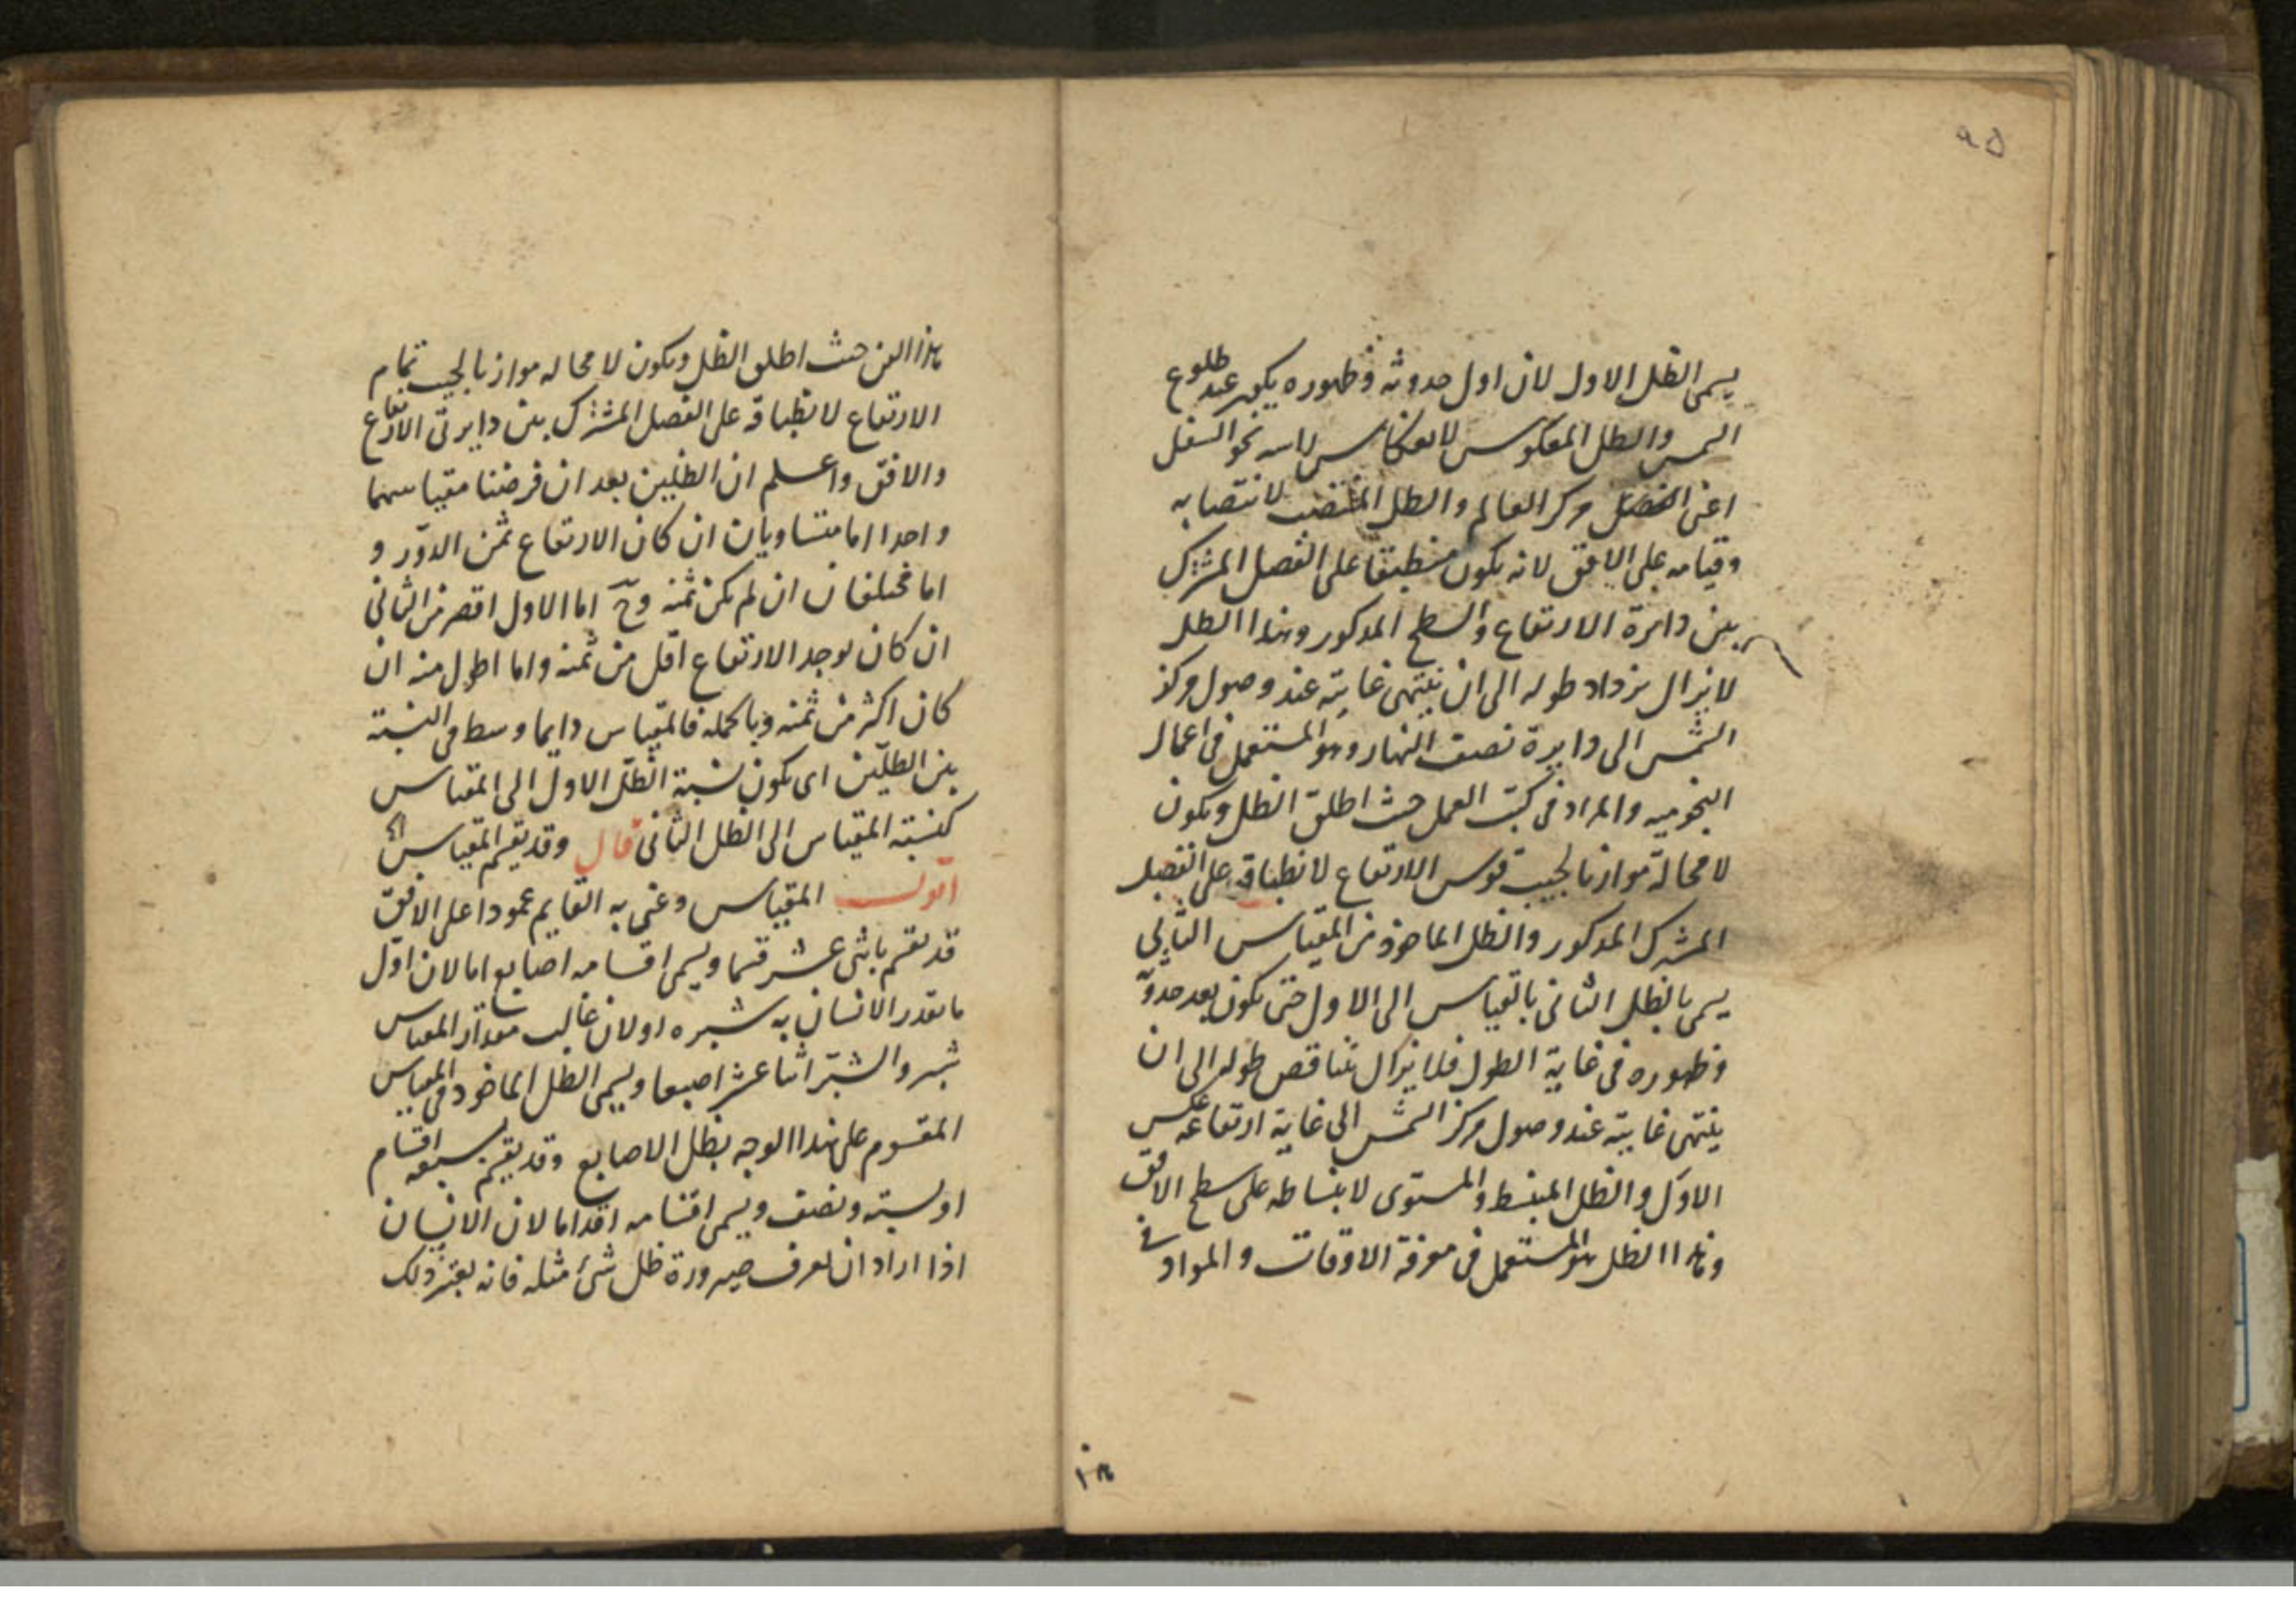 ٩٥
يسمى الظل الاول لان اول حدوثه وظهوره يكون عند طلوع
الشمس والظل المعكوس لانعكاس راسه نحو السفل
اعنى مركز العالم والظل المنتصب لانتصابه
وقيامه على الافق لانه يكون منطبقا على الفصل المشترك
بين دايرة الارتفاع والسطح المذكور وهذا الظل
لا يزال يزداد طوله الى ان ينتهى غايته عند وصول مركز
الشمس الى دايرة نصف النهار وهو المستعمل فى اعمال
النجوميه والمراد فى كتب العمل حيث اطلق الظل ويكون
لا محالة موازيا لجيب قوس الارتفاع لانطباقه على الفصل
المشترك المذكور والظل الماخوذ من المقياس الثانى
يسمى بالظل الثانى بالقياس الى الاول حتى يكون بعد حدوثه
وظهوره فى غاية الطول فلا يزال يتناقص طوله الى ان
ينتهى غايته عند وصول مركز الشمس الى غاية ارتفاعه عكس
الاول والظل المنبسط والمستوى لانبساطه على سطح الافق
وهذا الظل هو المستعمل فى معرفة الاوقات والمراد فى
هذا الفن حيث اطلق الظل ويكون لا محاله موازيا لجيب تمام
الارتفاع لانطباقه على الفصل المشترك بين دايرتى الارتفاع
والافق واعلم ان الظلين بعد ان فرضنا مقياسهما
واحدا اما متساويان ان كان الارتفاع ثمن الدور و
اما مختلفان ان لم يكن ثمنه وح اما الاول اقصر من الثانى
ان كان يوجد الارتفاع اقل من ثمنه واما اطول منه ان
كان اكثر من ثمنه وبالجملة فالمقياس دايما وسط فى النسبة
بين الظلين اى يكون نسبة الظل الاول الى المقياس
كنسبة المقياس الى الظل الثانى قال وقد يقسم المقياس
اقول المقياس وعنى به القايم عمودا على الافق
قد يقسم باثنى عشر قسما ويسمى اقسامه اصابع اما لان اول
ما يقدر الانسان به شبره او لان غالب مقدار المقياس
شبر والشبر اثنا عشر اصبعا ويسمى الظل الماخوذ من المقياس
المقسوم على هذا الوجه بظل الاصابع وقد يقسم بسبعه اقسام
او بسته ونصف ويسمى اقسامه اقداما لان الانسان
اذا اراد ان يعرف صيرورة ظل شئ مثله فانه يعتبر ذلك